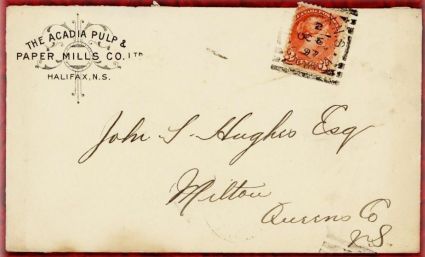 THE ACADIA PULP &
PAPER MILLS CO. LTD
HALIFAX, N.S.
N.S.
2
OC 6
97
John S Hughes Esq
Milton
Queens Co
N.S.